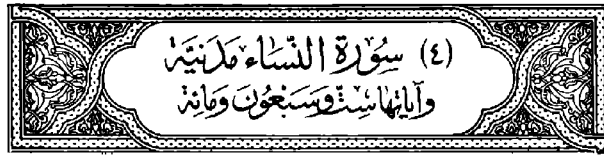 (٤) سُورَة النِّسَاء مَدَنيَّة
وَآيَاتُهَا سِتٌّ وَسَبْعُونَ وَمِائَة